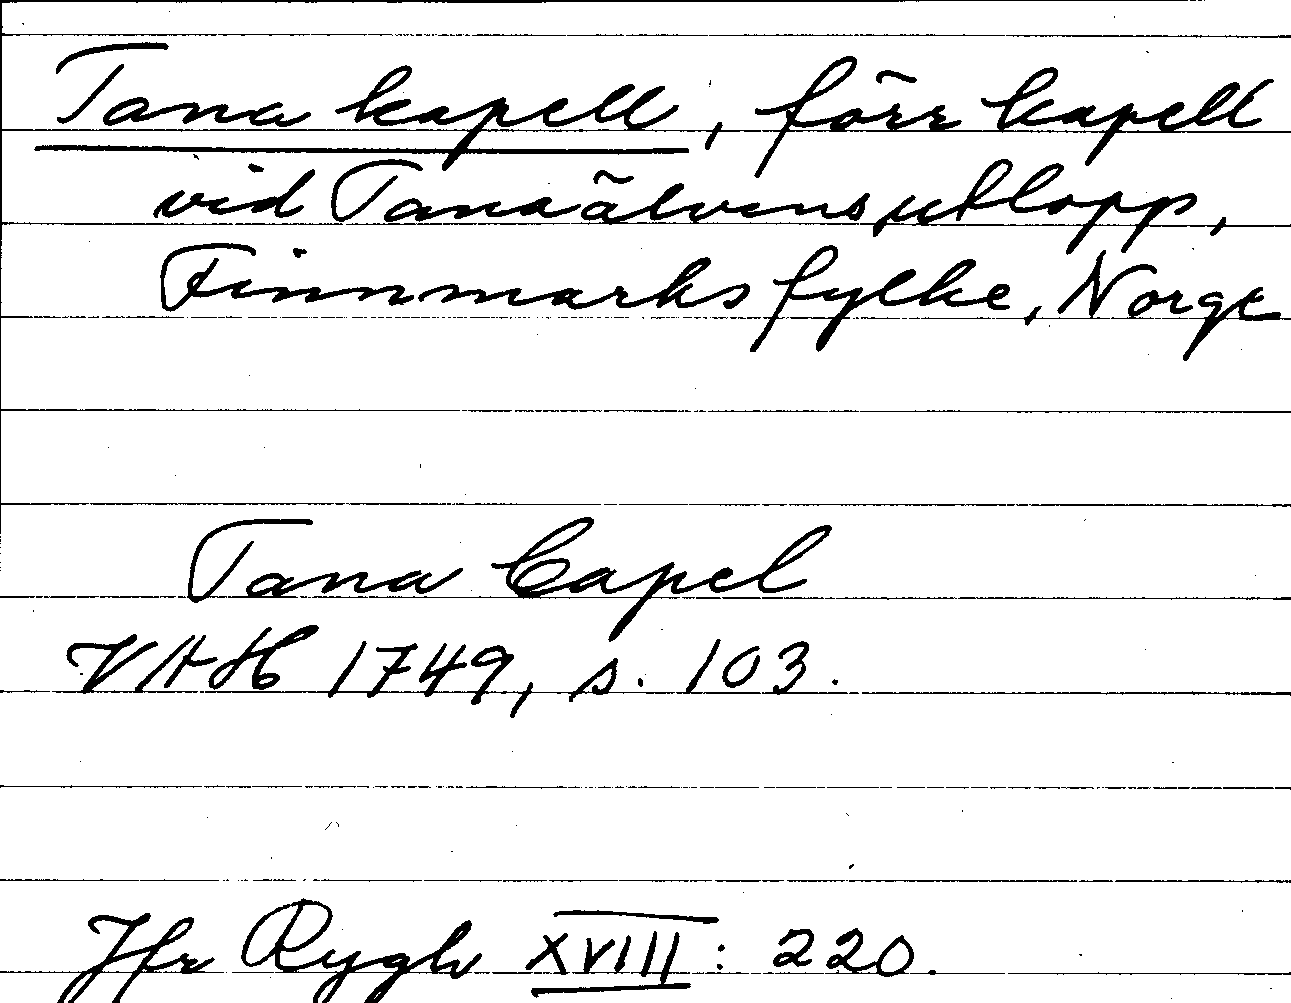 Tana kapell, förr kapell
vid Tanaälvens utlopp,
Finnmarks fylke, Norge
Tana Capel
VAH 1749, s. 103.
Jfr Rygh XVIII: 220.